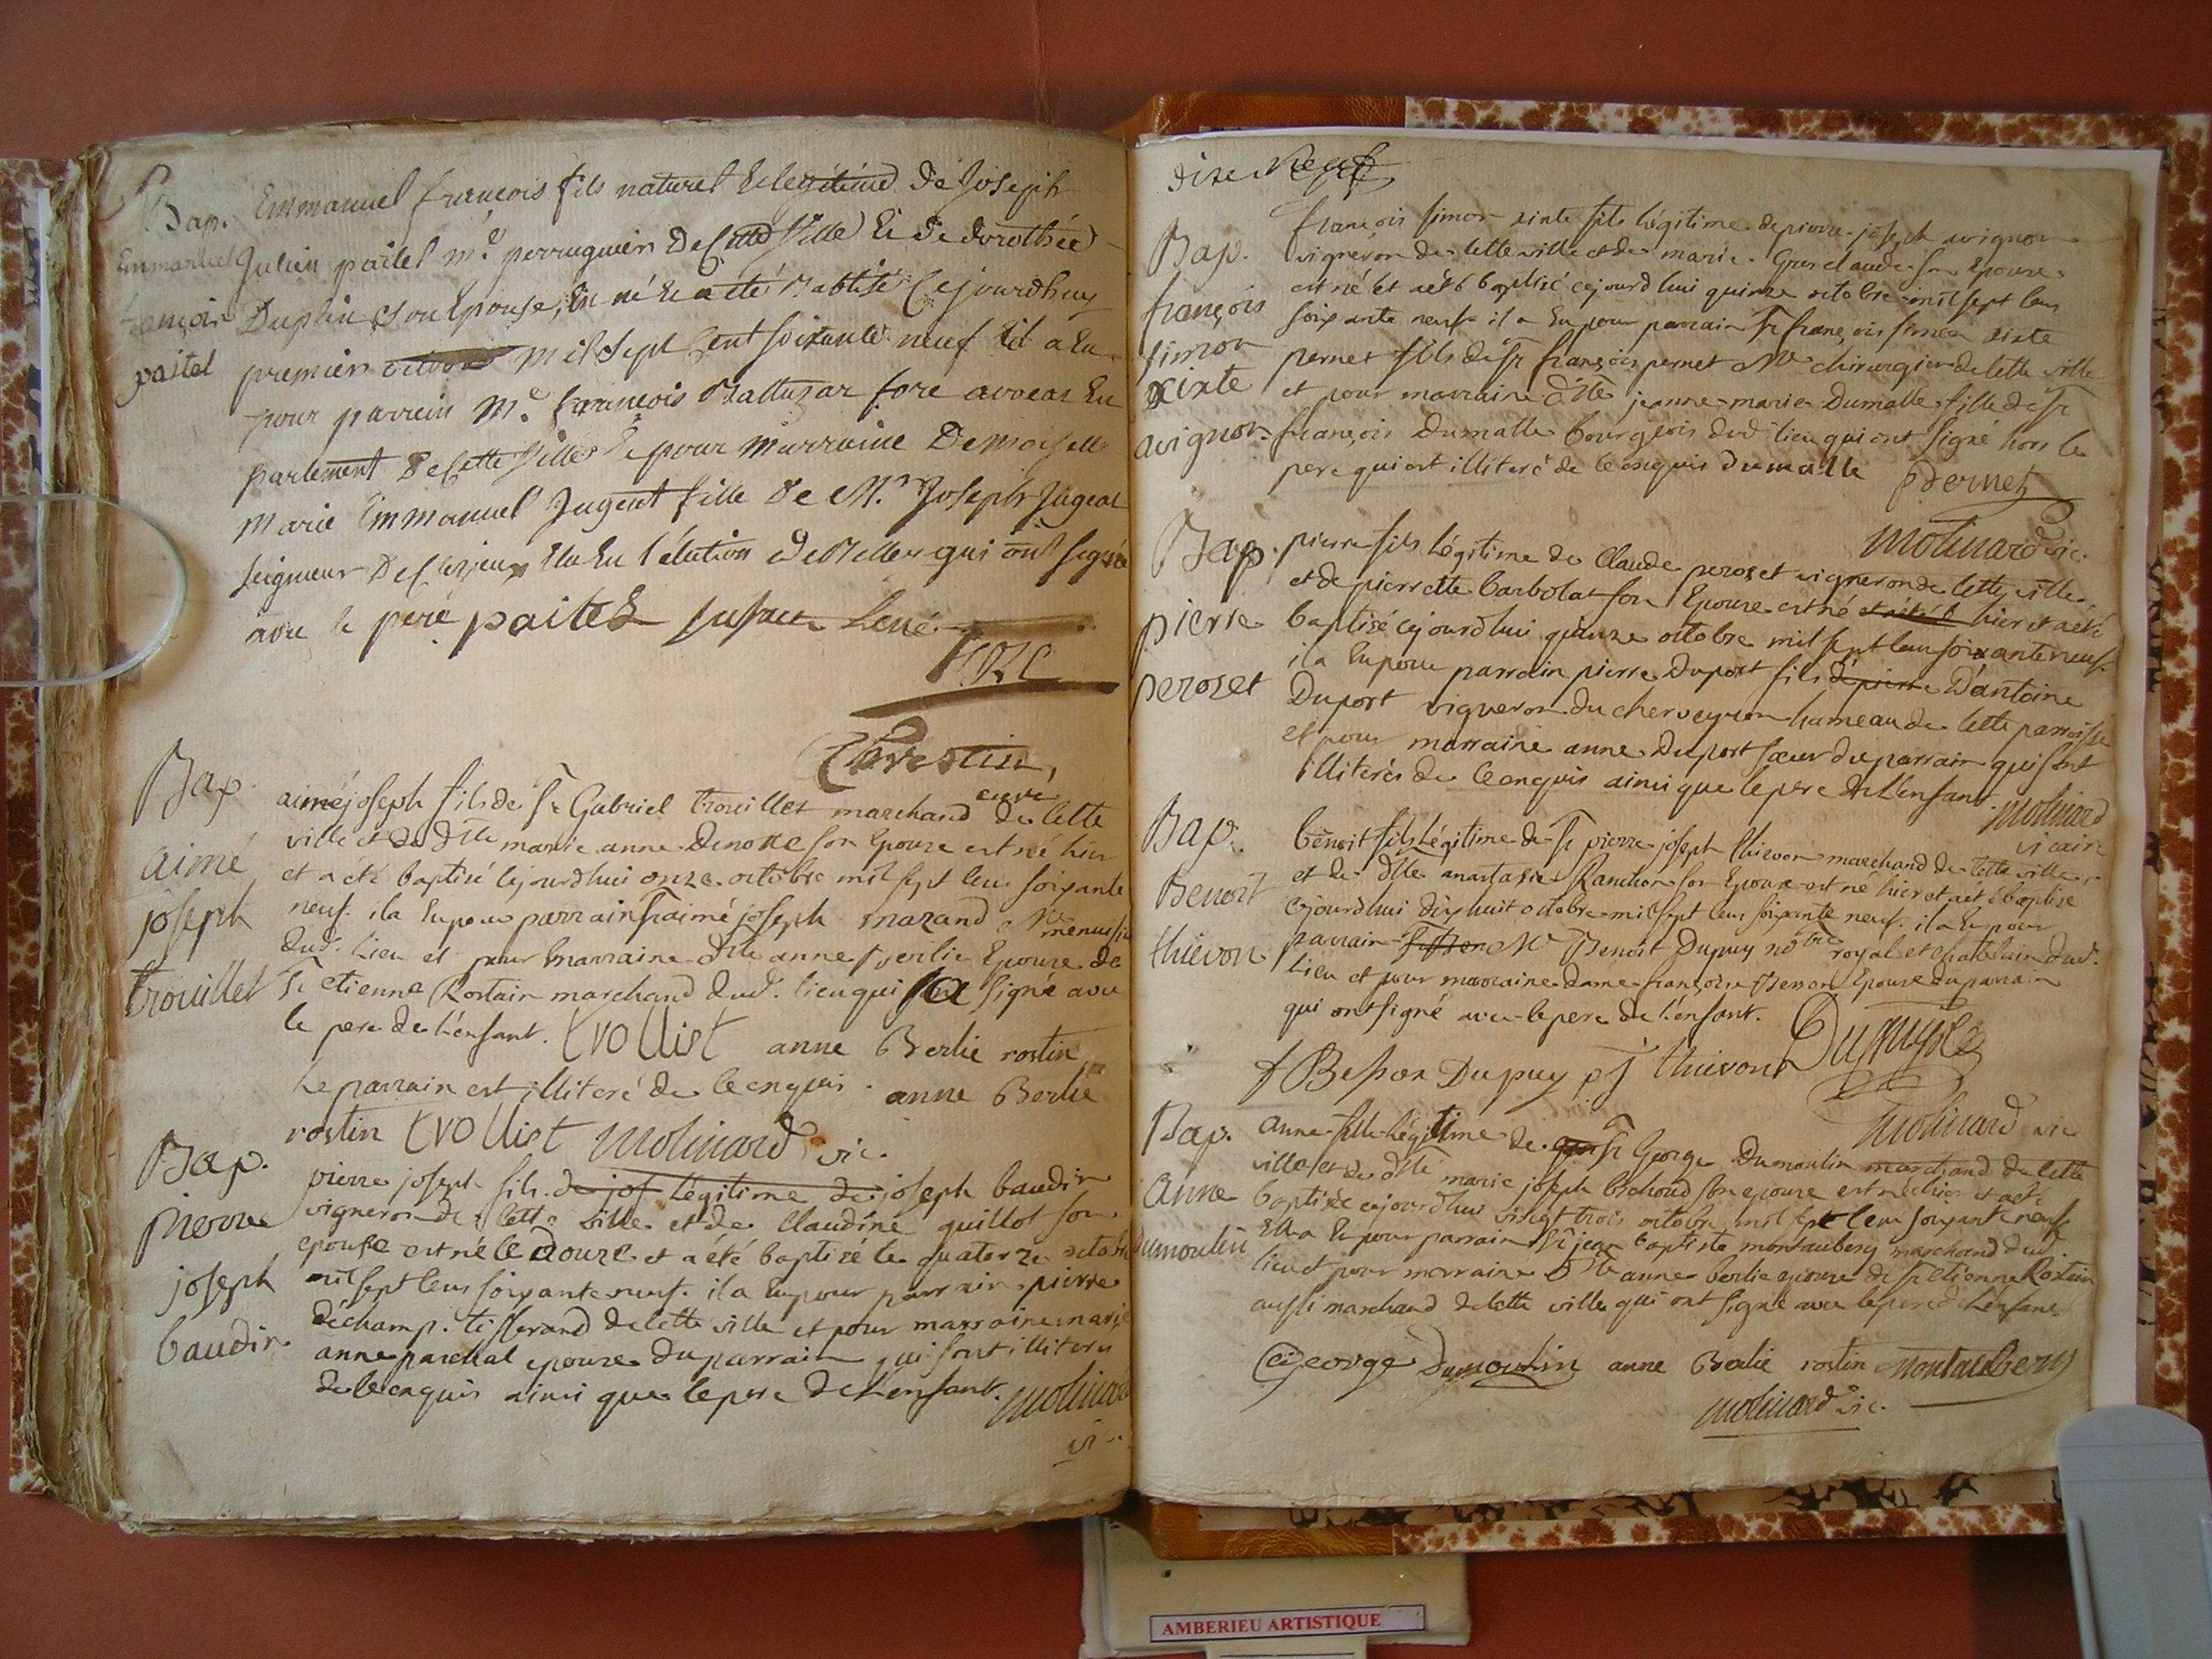 Bap.
Emmanuel
françois
paitel
Emmanuel francois fils naturel & legitime de Joseph
Julien paitel m.e perruquier de cette Ville & de dorothée
Duplin son Epouse, en né & a eté Batisé Cejourdhuy
premier octobre mil sept Cent soixante neuf il a Eu
pour parrein M.e francois Baltazar fore avocat En
parlement de Cette Ville & pour Marraine Demoiselle
Marie Emmanuel Jugent fille de M.r Joseph
seigneur de En l'élution de Belley qui ont signé
avec le pere paitel
fore
curé
Bap.
aimé
joseph
trouillet
aimé joseph fils de Sr Gabriel trouillet marchand de cette
ville et de dlle marie anne denotte son Epouse est né hier
et a été baptisé cejourdhui onze octobre mil sept cens soixante
neuf. il a eu pour parrain Sr aimé joseph marand Me menuisier
dud. lieu et pour marraine dlle anne verlie Epouse de
Sr etienne Rostain marchand dud. lieu qui a signé avec
le pere de l'enfant. trolliet anne Berlie rostin
Le parrain est illiteré de ce enquis. anne Berlie
rostin trolliet molinard vic.
Bap.
pierre
joseph
baudin
pierre joseph fils de jos légitime de joseph baudin
vigneron de cette ville et de Claudine guillot son
epouse est né le douze et a été baptizé le quatorze octobre
mil sept cens soixante neuf. il a eu pour parrain pierre
déchamp. tisserand de cette ville et pour marraine marie
anne paschal epouse du parrain qui sont illiterés
de ce enquis ainsi que le pere de l'enfant. molinard
vic
dixe neuf
Bap.
françois
simon
sixte
avignon
françois simon sixte fils légitime de pierre joseph avignon
vigneron de cette ville et de marie Gros claude son Epouse
est né et a été baptisé cejourdhui quinze octobre mil sept cens
soixante neuf. il a Eu pour parrain Sr françois simon sixte
pernet fils de Sr françois pernet Me chirurgien de cette ville
et pour marraine dlle jeanne marie Dumalle fille de Sr
françois Dumalle bourgeois dud. lieu qui ont signé hors le
pere qui est illiteré de ce enquis dumalle Pernet
molinard vic.
Bap.
pierre
perozet
pierre fils légitime de Claude perozet vigneron de cette ville
et de pierrette barbolat son Epouse est né et a été b hier et a été
baptisé cejourdhui quinze octobre mil sept cens soixante neuf.
il a Eu pour parrain pierre Duport fils de pierre D'antoine
Duport vigneron du cherveyron hameau de cette parroisse
et pour marraine anne Duport sœur du parrain qui sont
illiterés de ce enquis ainsi que le pere de l'enfant. molinard
vicaire
Bap.
Benoit
thievon
benoit fils légitime de Sr pierre joseph thievon marchand de cette ville
et de dlle anastasie Ranchon son Epouse est né hier et a été baptisé
cejourdhui dix huit octobre mil sept cens soixante neuf. il a Eu pour
parrain Me Benoit Dupuy notre royal et chatelain dud.
lieu et pour marraine dame françoise Besson Epouse du parrain
qui ont signé avec le pere de l'enfant. Dupuy
f Besson Dupuy p j thievon
molinard vic
Bap.
anne
dumoulin
anne fille légitime de Sr George Dumoulin marchand de cette
ville et de dlle marie joseph bichoud son epouse est née hier et a été
baptisée cejourdhui vingt trois octobre mil sept cens soixante neuf
Elle a Eu pour parrain Sr jean baptiste montaubery marchand dud.
lieu et pour marraine Dlle anne berlie epouse de Sr etienne Rostain
aussi marchand de cette ville qui ont signé avec le pere de l'enfant
George Dumoulin anne Berlie rostin montaubery
molinard vic.
AMBERIEU ARTISTIQUE